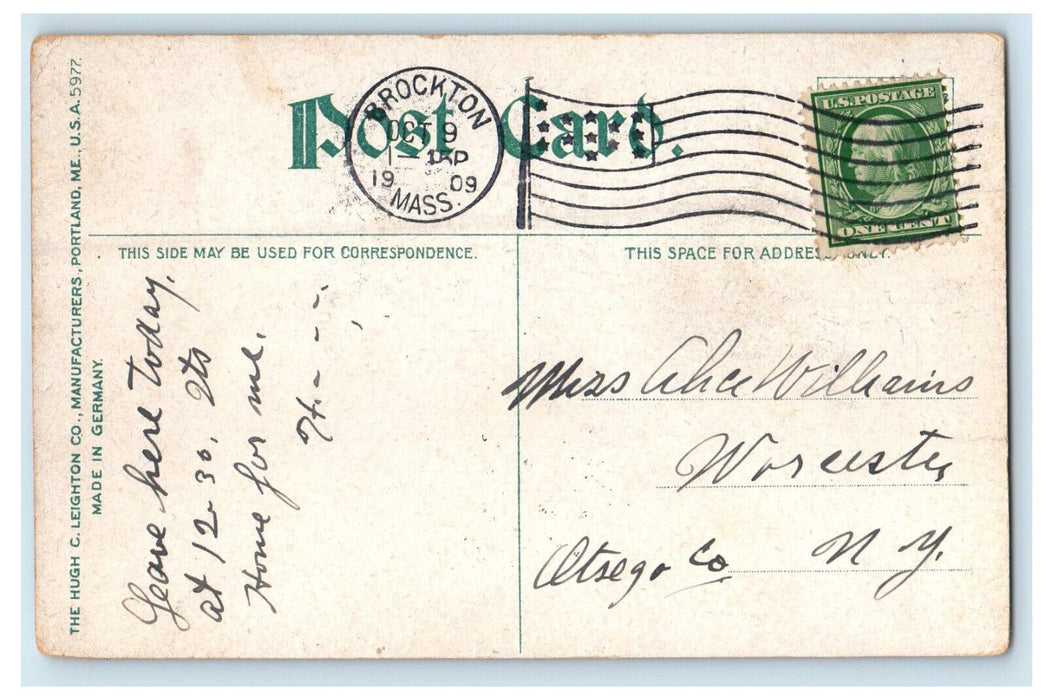 Post Card.
BROCKTON
OCT 9
1 - 15P
19 09
MASS.
U.S. POSTAGE
ONE CENT
THE HUGH C. LEIGHTON CO., MANUFACTURERS, PORTLAND, ME., U.S.A. 5977.
MADE IN GERMANY.
THIS SIDE MAY BE USED FOR CORRESPONDENCE.
Leave here today,
at 12-30. Its
Home for me.
H. - - -
THIS SPACE FOR ADDRESS ONLY.
Miss Alice Williams
Worcester
Otsego Co N.Y.